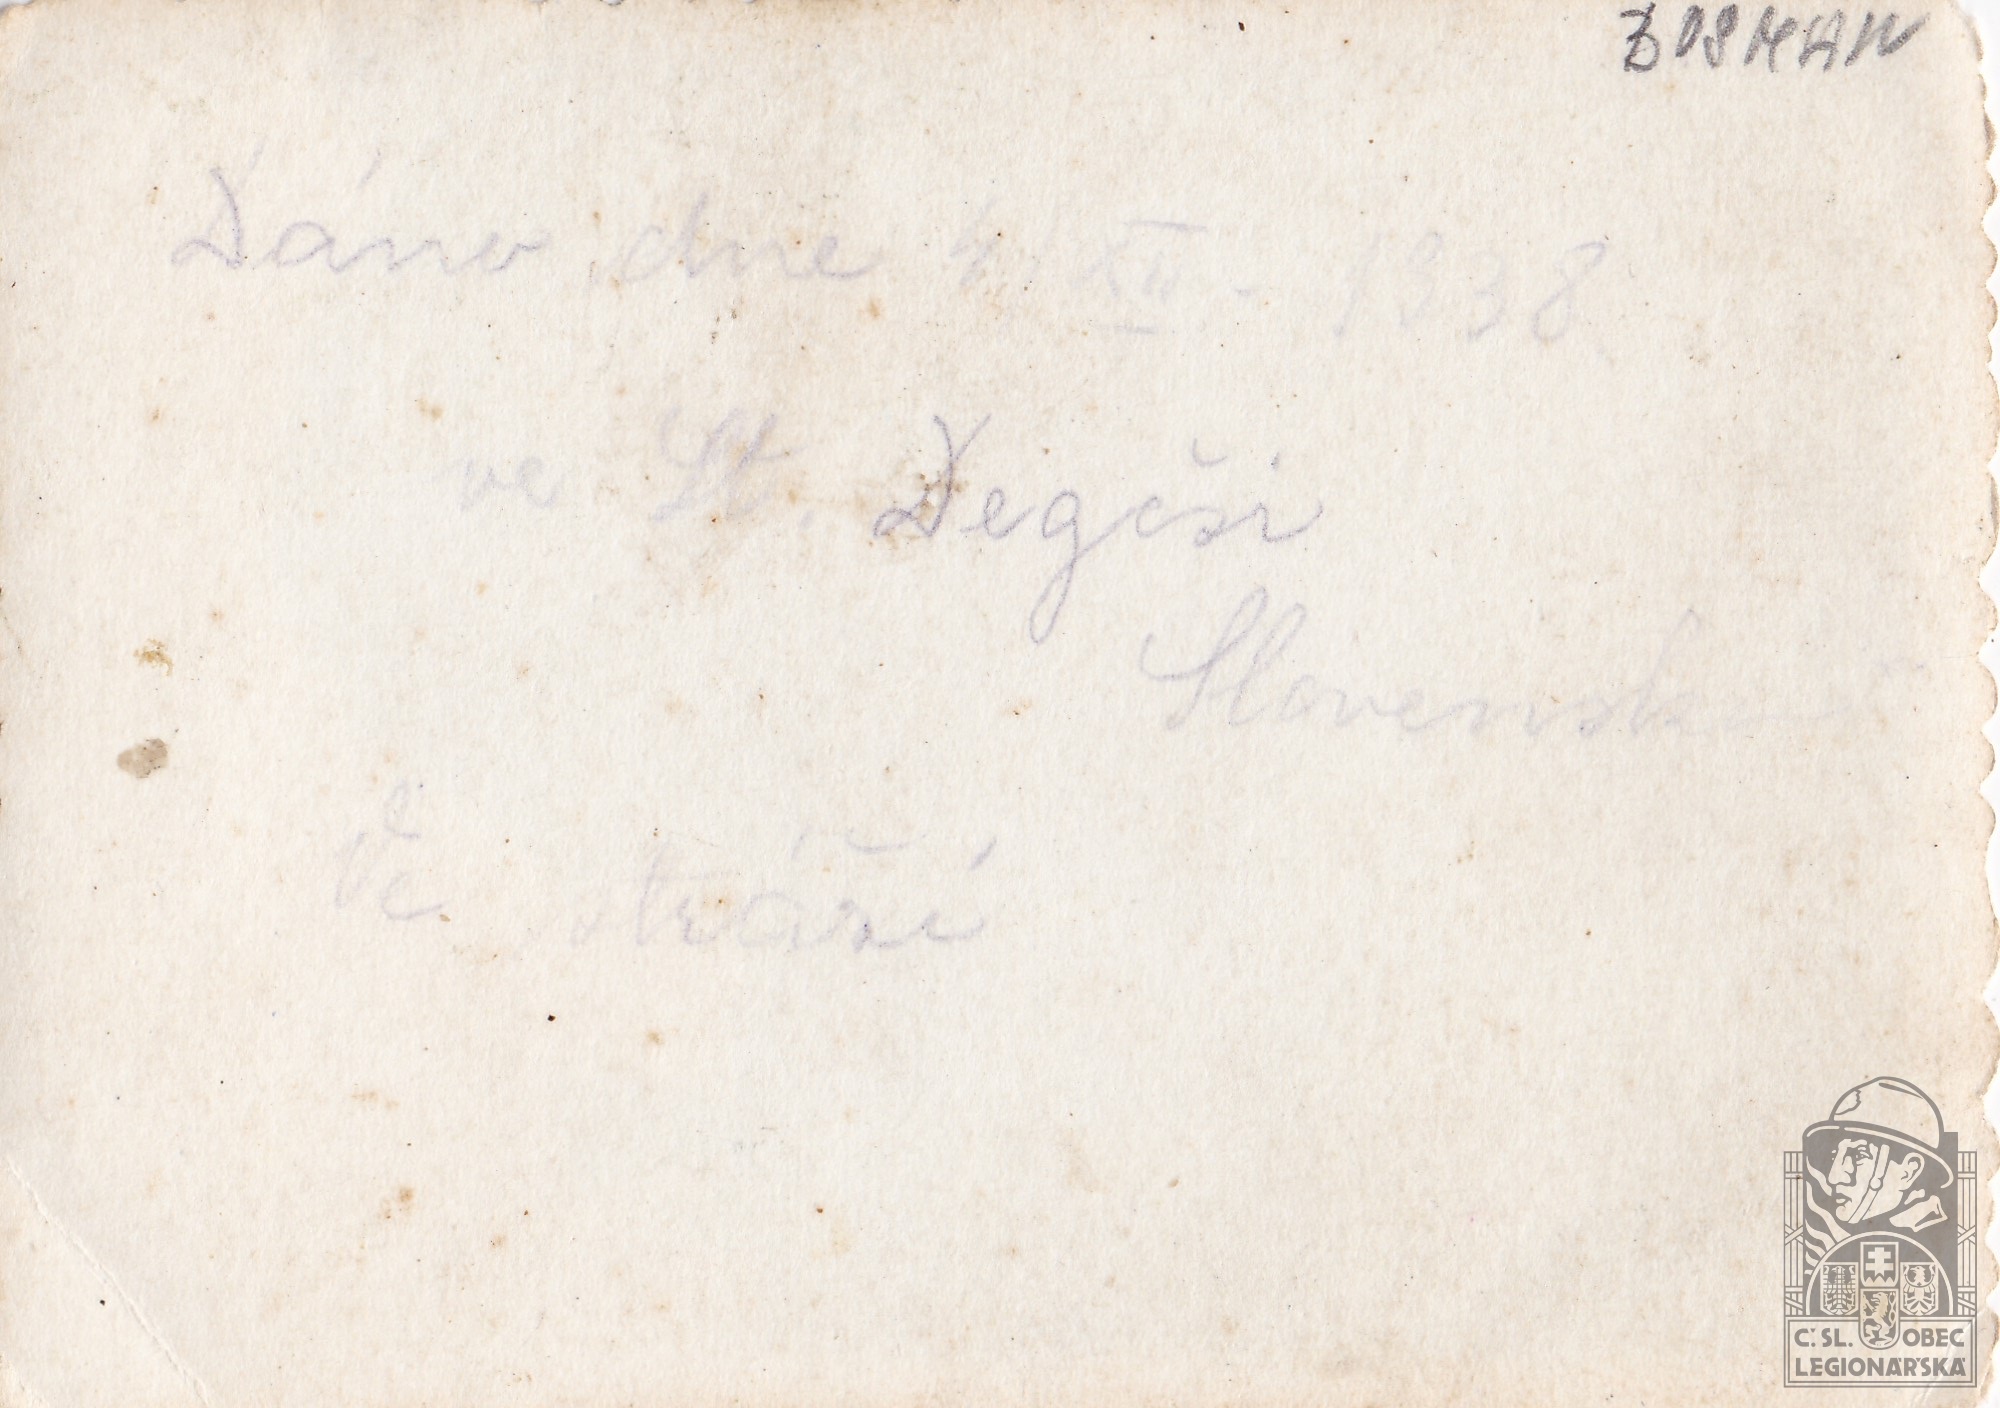 Dáno dne 4. XII. - 1938
ve St. Degčsi
Slovensko
Ve stráži
C.SL. OBEC
LEGIONÁŘSKÁ